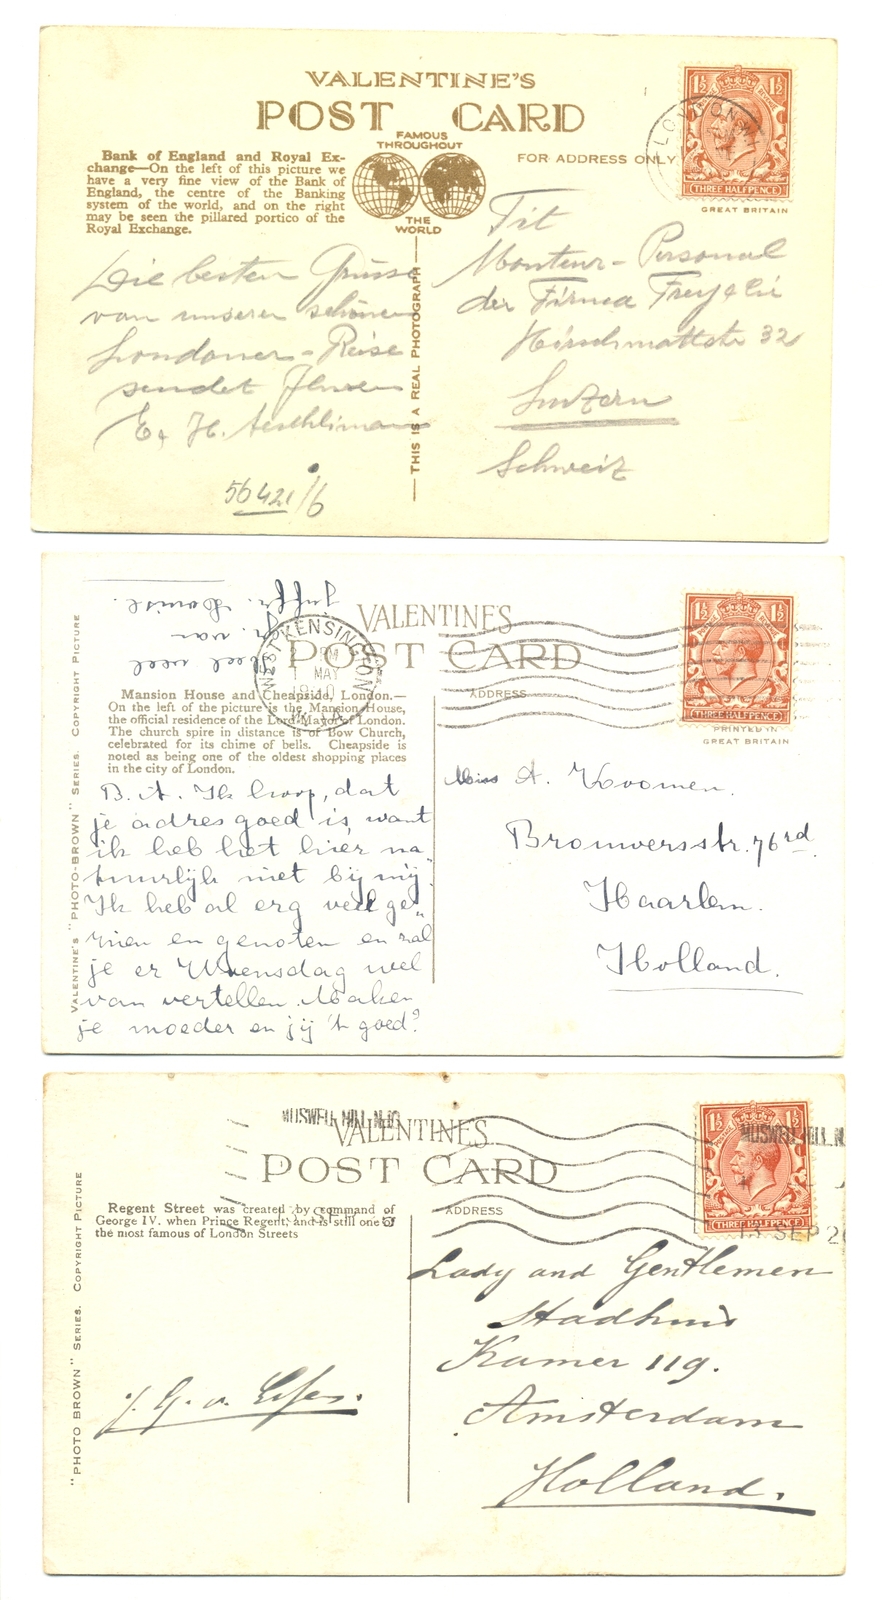 VALENTINE'S
POST CARD
FAMOUS
THROUGHOUT
THE
WORLD
Bank of England and Royal Ex-
change—On the left of this picture we
have a very fine view of the Bank of
England, the centre of the Banking
system of the world, and on the right
may be seen the pillared portico of the
Royal Exchange.
FOR ADDRESS ONLY
LONDON W1
1½ 1½
THREE HALFPENCE
GREAT BRITAIN
THIS IS A REAL PHOTOGRAPH
Die besten Grüsse
von unserer schönen
Londoner-Reise
sendet Ihnen
E. H. Aeschlimann
56421/6
Tit
Monteur-Personal
der Firma Frey & Cie
Hirschmattstr 32
Luzern
Schweiz
Heel veel
gr. van
Juffr. Louise.
VALENTINES
POST CARD
WEST KENSINGTON
PM
1 MAY
ADDRESS
1½ 1½
POSTAGE REVENUE
THREE HALFPENCE
PRINTED IN
GREAT BRITAIN
VALENTINE'S "PHOTO-BROWN" SERIES. COPYRIGHT PICTURE
Mansion House and Cheapside, London.—
On the left of the picture is the Mansion House,
the official residence of the Lord Mayor of London.
The church spire in distance is of Bow Church,
celebrated for its chime of bells. Cheapside is
noted as being one of the oldest shopping places
in the city of London.
B. A. Ik hoop, dat
je adres goed is want
ik heb het hier na
tuurlijk niet bij mij.
Ik heb al erg veel ge„
zien en genoten en zal
je er Woensdag wel
van vertellen. Maken
je moeder en jij 't goed?
Miss A. Koomen.
Brouwersstr. 76rd
Haarlem.
Holland.
MUSWELL HILL. N.10
VALENTINES
POST CARD
ADDRESS
1½ 1½
POSTAGE
THREE HALFPENCE
MUSWELL HILL. N.
13 SEP 2
"PHOTO BROWN" SERIES. COPYRIGHT PICTURE
Regent Street was created by command of
George IV. when Prince Regent, and is still one of
the most famous of London Streets
Lady and Gentlemen
Stadhuis
Kamer 119.
Amsterdam
Holland.